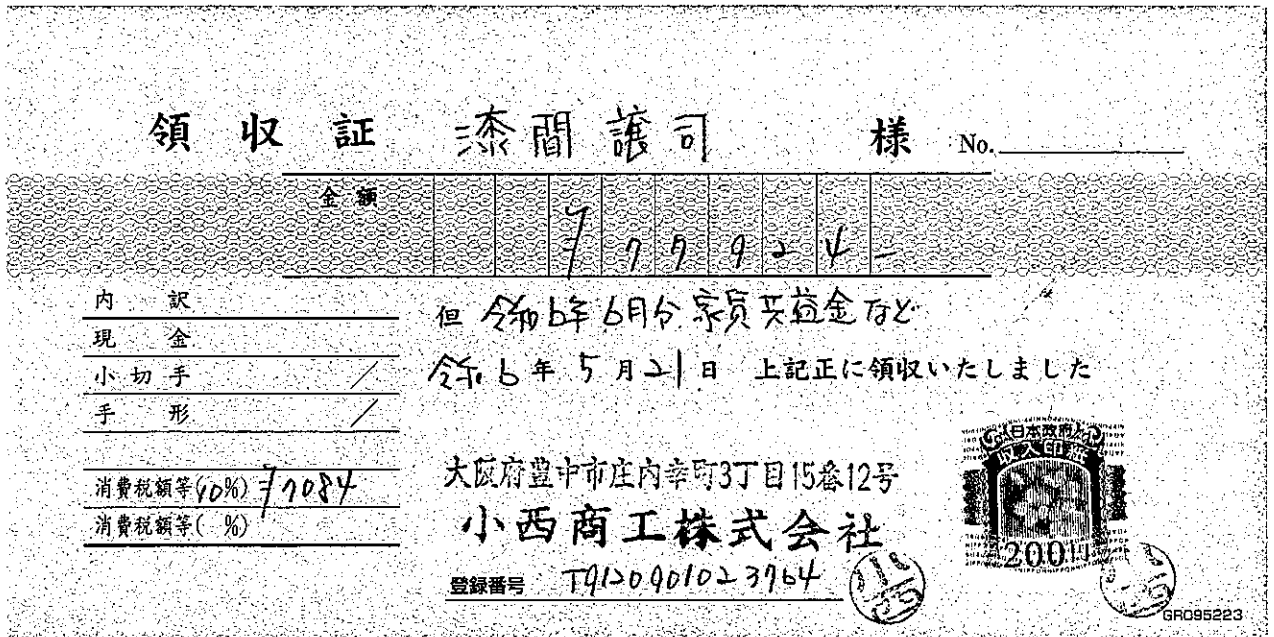 領収証 漆間譲司 様 No.
金額 ¥77924-
内訳
現金
小切手 /
手形 /
消費税額等(10%) ¥7084
消費税額等( %)
但 令和6年6月分 家賃共益金など
令和6年5月21日 上記正に領収いたしました
大阪府豊中市庄内幸町3丁目15番12号
小西商工株式会社
登録番号 T9120901023764
小西
日本政府
収入印紙
200円
小西
GR095223